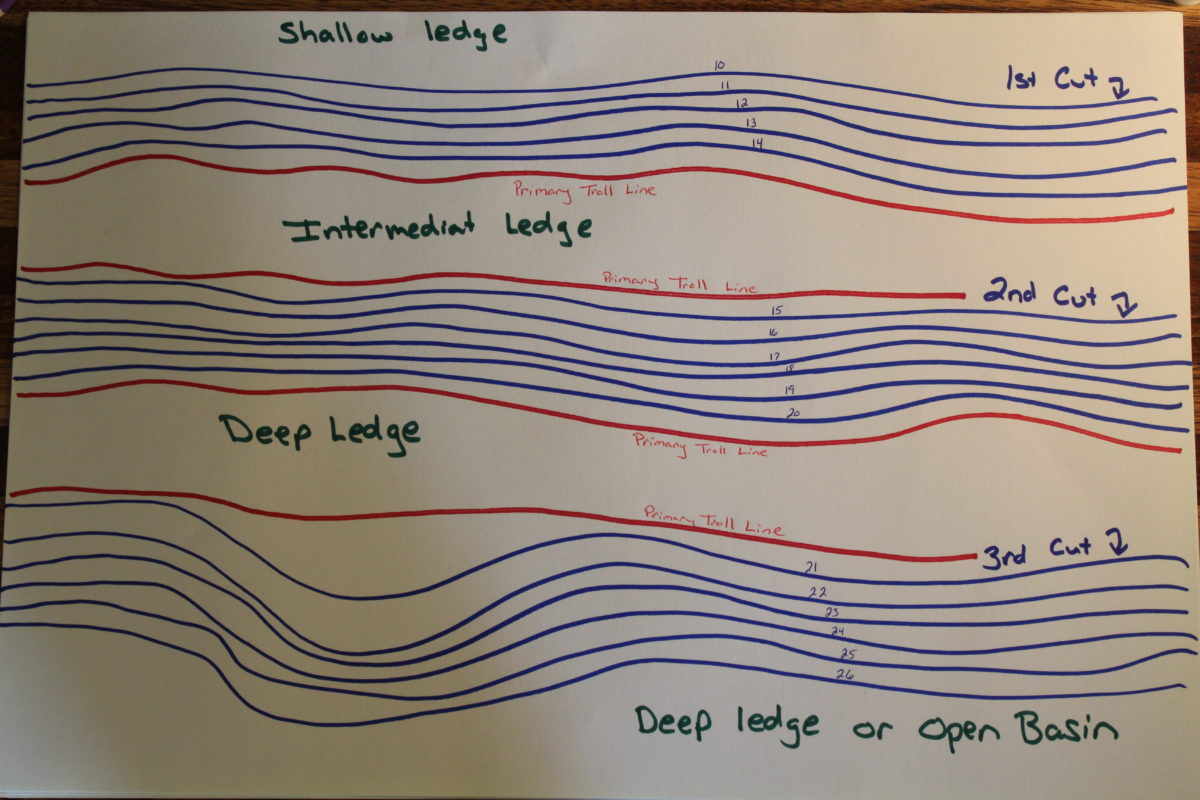 Shallow ledge
10
1st Cut
11
12
13
14
Primary Troll Line
Intermediat Ledge
Primary Troll Line
2nd Cut
15
16
17
18
19
20
Deep Ledge
Primary Troll Line
Primary Troll Line
3rd Cut
21
22
23
24
25
26
Deep ledge or Open Basin